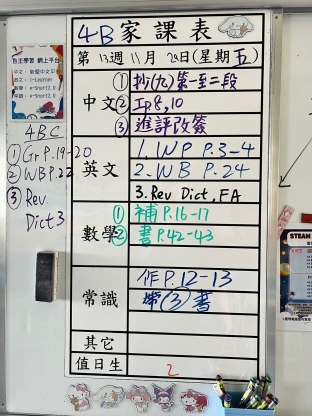 4B家課表
第13週11月29日(星期五)
中文
①抄(九)第一至二段
②Ip8,10
③進評改簽
英文
1. WP P.3-4
2. WB P.24
3. Rev Dict, FA
數學
①補P.16-17
②書P.42-43
常識
作P.12-13
第(3)書
其它
值日生
2
自主學習 網上平台
4BC
①Gr P.19-20
②WB P.22
③Rev Dict 3
STEAM